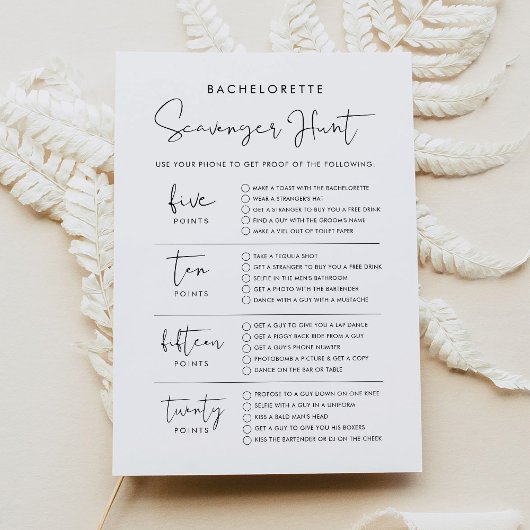 BACHELORETTE
Scavenger Hunt
USE YOUR PHONE TO GET PROOF OF THE FOLLOWING:
five
POINTS
MAKE A TOAST WITH THE BACHELORETTE
WEAR A STRANGER'S HAT
GET A STRANGER TO BUY YOU A FREE DRINK
FIND A GUY WITH THE GROOM'S NAME
MAKE A VIEL OUT OF TOILET PAPER
ten
POINTS
TAKE A TEQUILA SHOT
GET A STRANGER TO BUY YOU A FREE DRINK
SELFIE IN THE MEN'S BATHROOM
GET A PHOTO WITH THE BARTENDER
DANCE WITH A GUY WITH A MUSTACHE
fifteen
POINTS
GET A GUY TO GIVE YOU A LAP DANCE
GET A PIGGY BACK RIDE FROM A GUY
GET A GUY'S PHONE NUMBER
PHOTOBOMB A PICTURE & GET A COPY
DANCE ON THE BAR OR TABLE
twenty
POINTS
PROPOSE TO A GUY DOWN ON ONE KNEE
SELFIE WITH A GUY IN A UNIFORM
KISS A BALD MAN'S HEAD
GET A GUY TO GIVE YOU HIS BOXERS
KISS THE BARTENDER OR DJ ON THE CHEEK